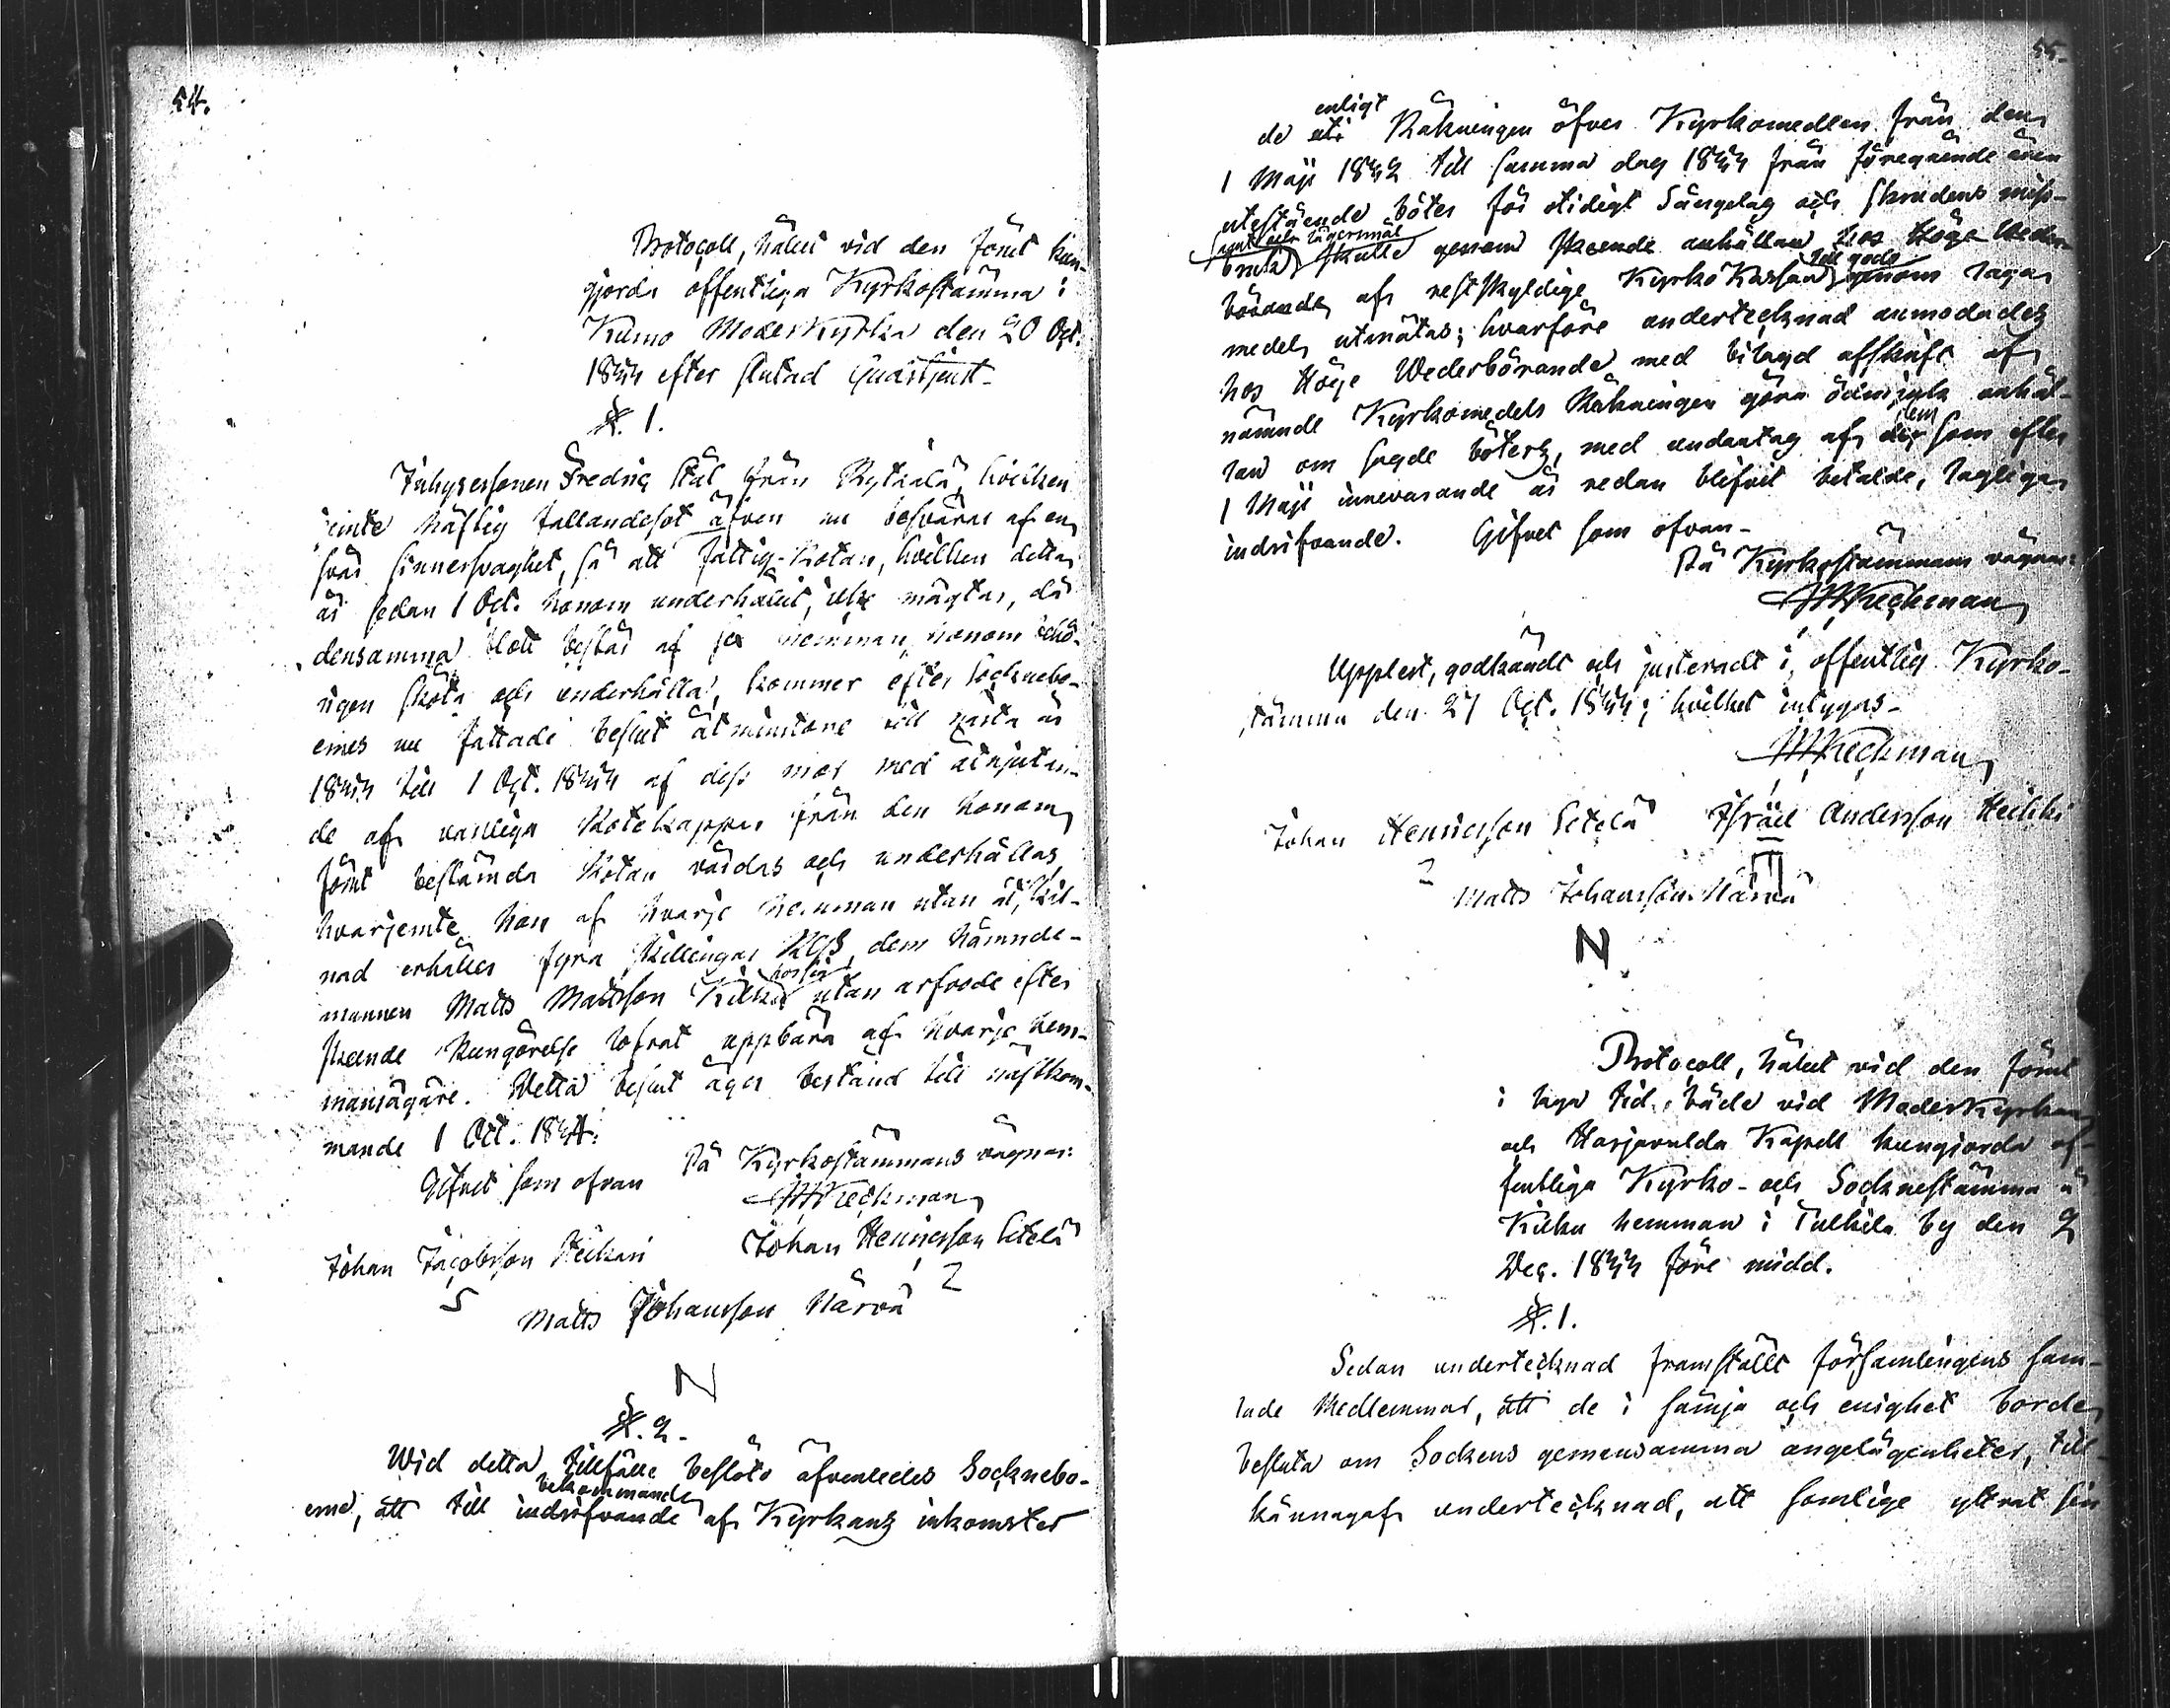 54.
Protocoll, hållet vid den förut kun-
gjorda offentliga Kyrkostämma i
Kumo ModerKyrka den 20 Oct.
1844 efter slutad Gudstjenst.
§. 1.
Inhysessonen Fredric Stål från Ryttälä, hvilken
jemte häftig fallandesot äfven nu besväras af en
svår sinnessvaghet, så att fattig-Rotan, hvilken detta
år sedan 1 Oct. honom underhållit, icke mägtar, då
densamma blott består af sex hemman, honom behö-
rigen sköta och underhålla, kommer efter Socknebo-
ernes nu fattade beslut åtminstone till nästa år
1844 till 1 Oct. 1844 af dess mor med åtnjutan-
de af vanliga Rotekappar från den honom
förut bestämda Rotan vårdas och underhållas
hvarjemte hon af hvarje hemman utan åtskil-
nad erhåller fyra skillingar RGS, dem Nämnde-
mannen Matts Mattsson Kilkku hos sig utan arfvode efter
skeende kungörelse lofvat uppbära af hvarje hem-
mansägare. Detta beslut äger bestånd till nästkom-
mande 1 Oct. 184
Gifvet som ofvan På Kyrkostämmans vägnar:
Johan Jacobsson Johan Henricsson Setelä
S 2
Matts Johansson Härvä
N
§. 2.
Wid detta tillfälle beslöto äfvenledes Socknebo-
bekommande
erne, att till indrifvande af Kyrkans inkomster
55.
enligt
de uti Räkningen öfver Kyrkomedlen från den
1 Maji 1842 till samma dag 1844 från föregående åren
utestående böter för otidigt Sängelag och Skrudens miss-
samt och lägersmål
bruk skulle genom skeende anhållan hos Höge Weder-
till godo
börande af restskyldige KyrkoKassan genom laga
medel utmätas; hvarföre undertecknad anmodades
hos Höge Wederbörande med bilagd afskrift af
nämnde Kyrkomedels Räkningen göra ödmjuk anhål-
dem
lan om sagde böters, med undantag af som efter
1 Maji innevarande år redan blifvit betalde, lagliga
indrifvande. Gifvet som ofvan.
På Kyrkostämmans vägnar:
Upplest, godkändt och justeradt i offentlig Kyrko-
stämma den 27 Oct. 1844; hvilket intygas.
Johan Henricsson Setelä Isräel Andersson Heikki
2
Matts Johansson Härvä
N
Protocoll, hållet vid den förut
i laga tid, både vid ModerKyrkan
och Harjavalda Kapell kungjorda of-
fentliga Kyrko- och Socknestämma å
Kilku hemman i Tulkila by den 2
Dec. 1844 före midd.
§. 1.
Sedan undertecknad framställt församlingens sam-
lade Medlemmar, att de i sämja och enighet borde
besluta om Sockens gemensamma angelägenheter, till-
kännagaf undertecknad, att somlige yttrat sin